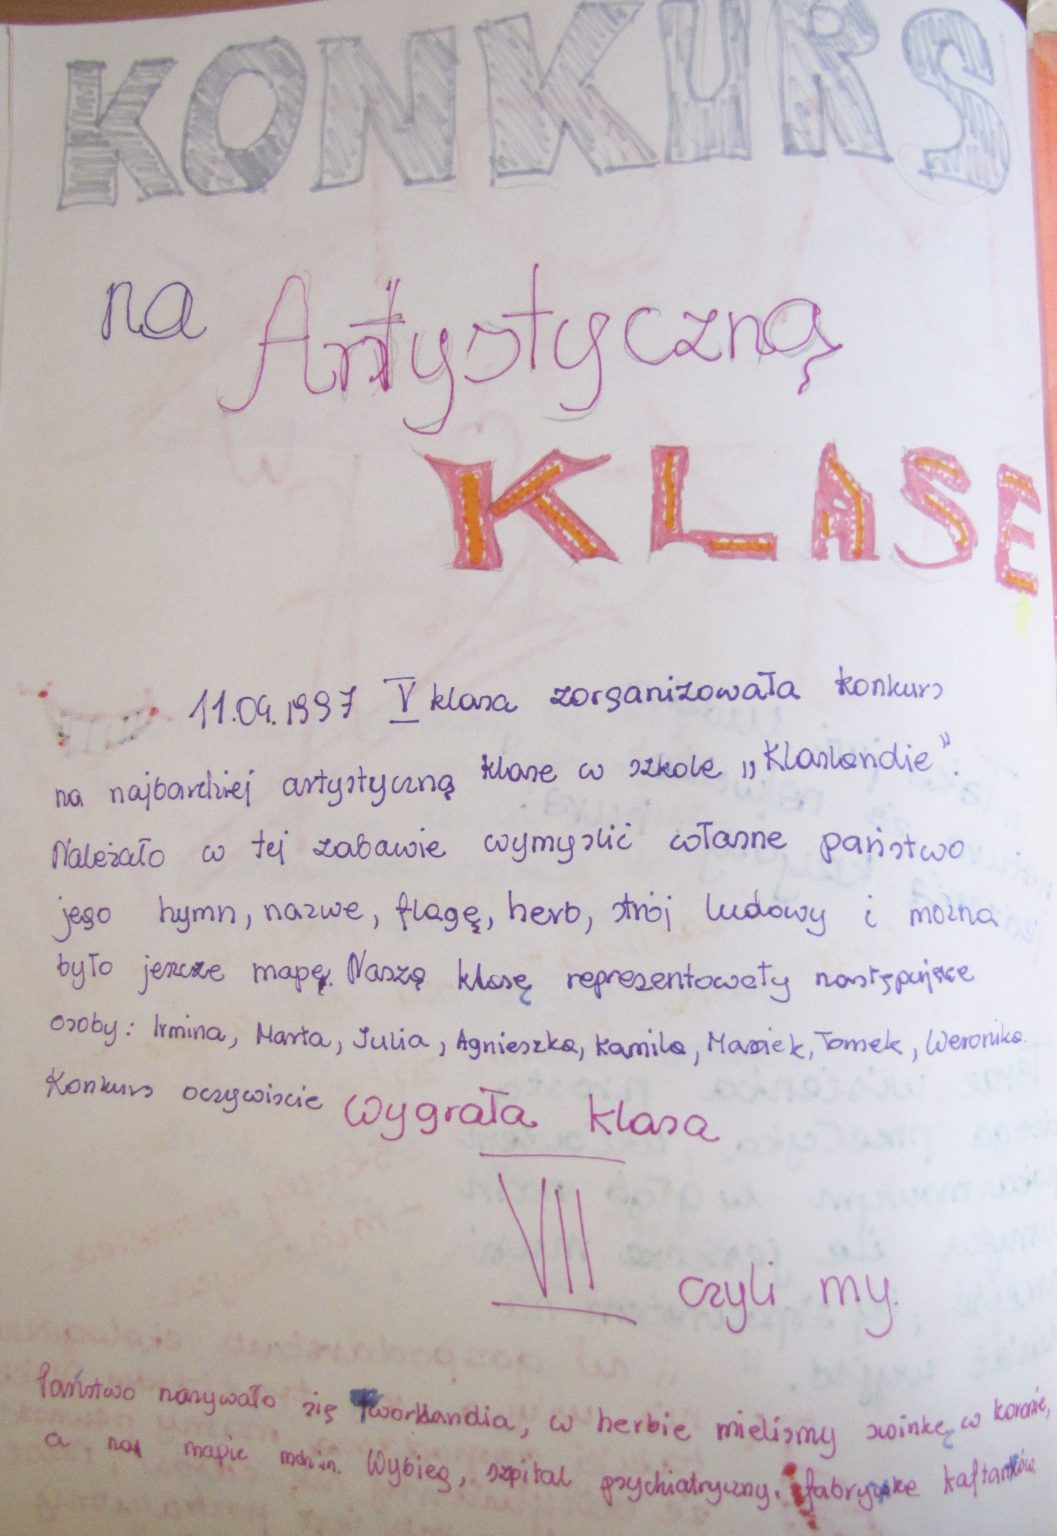 KONKURS
na Artystyczną
KLASĘ
11.09.1997 V klasa zorganizowała konkurs
na najbardziej artystyczną klase w szkole „Klaslandie".
Należało w tej zabawie wymyslić własne państwo
jego hymn, nazwe, flagę, herb, strój ludowy i można
było jeszcze mapę. Naszą klasę reprezentowały następujące
osoby: Irmina, Marta, Julia, Agnieszka, Kamila, Maciek, Tomek, Weronika.
Konkurs oczywiscie wygrała klasa
VII czyli my.
Państwo nazywało się Tworklandia, w herbie mielismy swinkę w koronie,
a na mapie m.in. Wybieg, szpital psychiatryczny, fabryke kaftanków